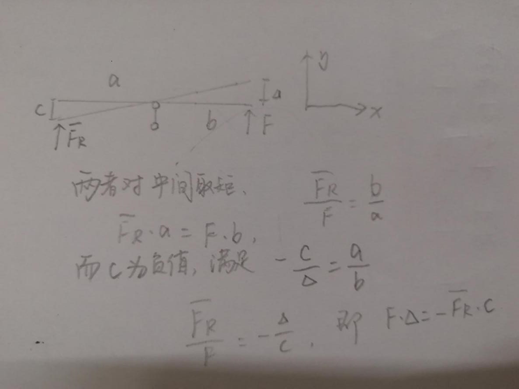 y
a
c
a
F̄R
b
F
x
两者对中间取矩.
F̄R/F = b/a
F̄R·a = F·b,
而C为负值, 满足 -C/Δ = a/b
F̄R/F = -Δ/C, 即 F·Δ = -F̄R·C